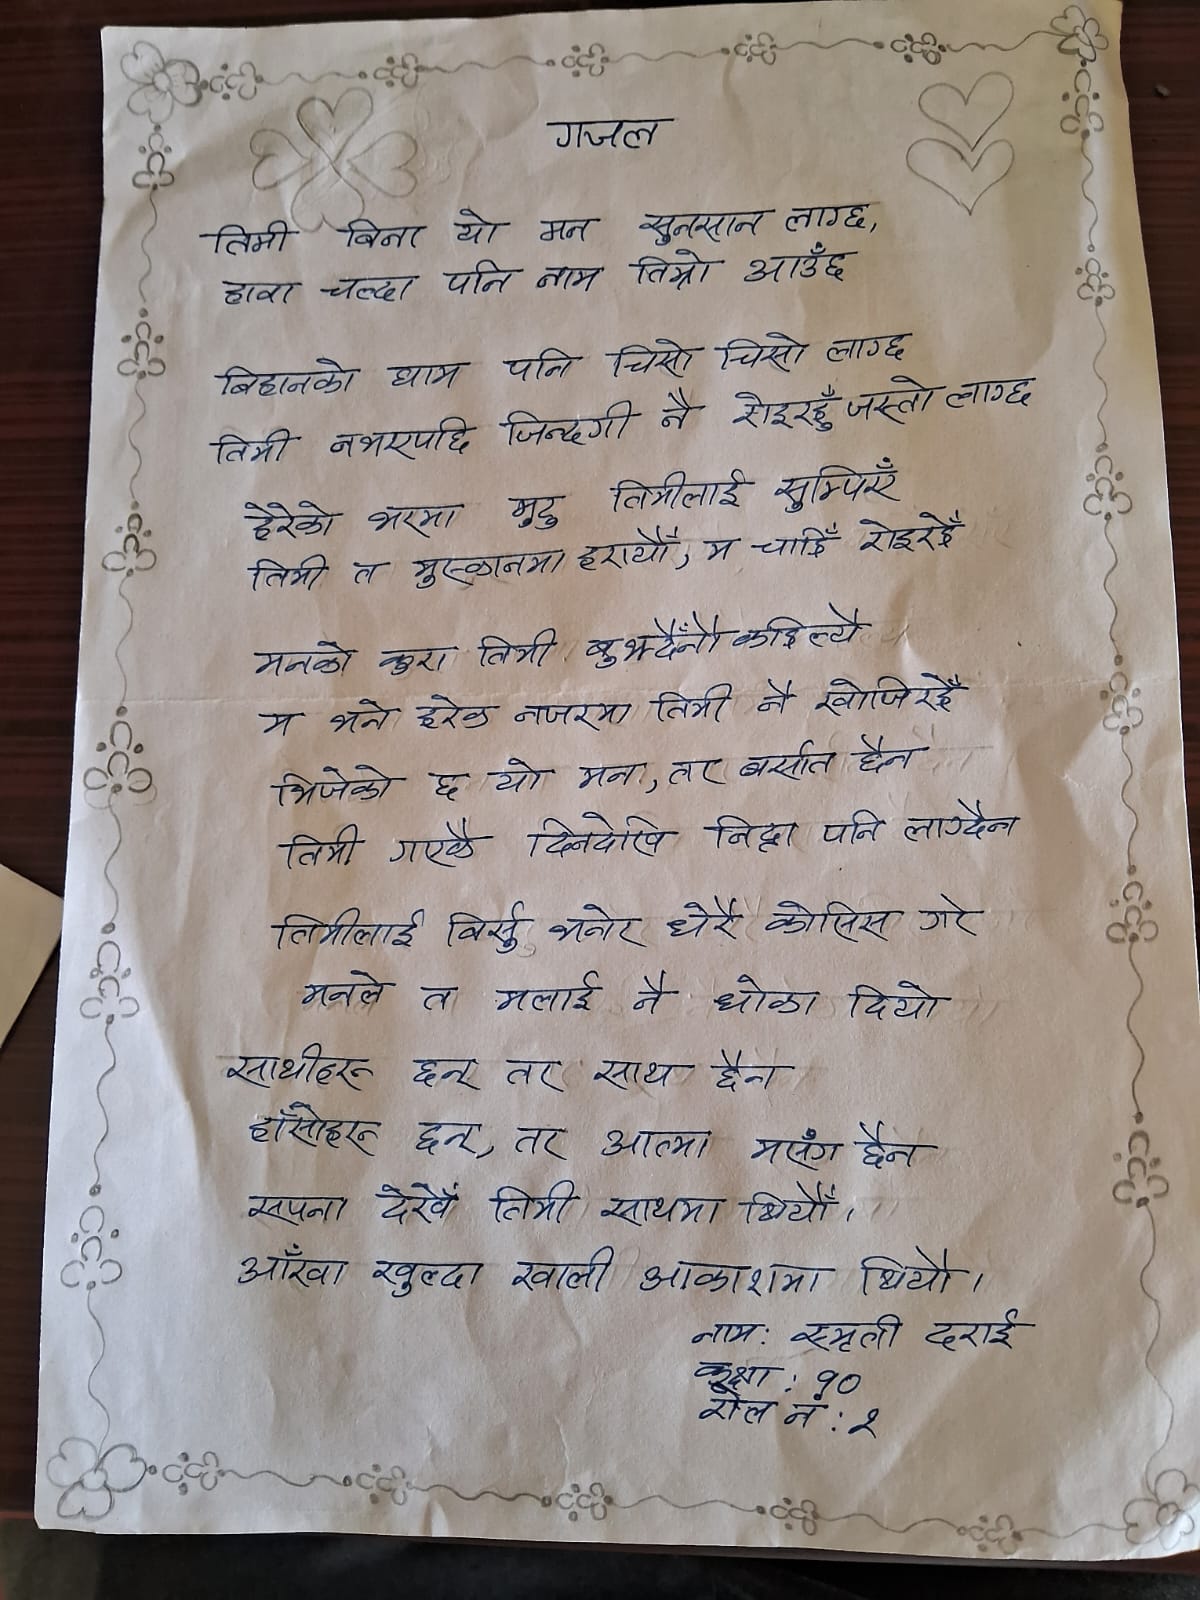 गजल
तिमी बिना यो मन सुनसान लाग्छ,
हावा चल्दा पनि नाम तिम्रो आउँछ
बिहानको घाम पनि चिसो चिसो लाग्छ
तिमी नभएपछि जिन्दगी नै रोइरहुँ जस्तो लाग्छ
हेरेको भरमा मुटु तिमीलाई सुम्पिएँ
तिमी त मुस्कानमा हरायौँ, म चाहिँ रोइरहेँ
मनको कुरा तिमी बुझ्दैनौँ कहिल्यै
म भने हरेक नजरमा तिमी नै खोजिरहेँ
भिजेको छ यो मन, तर बर्सात छैन
तिमी गएकै दिनदेखि निद्रा पनि लाग्दैन
तिमीलाई बिर्सु भनेर धेरै कोसिस गरे
मनले त मलाई नै धोका दियो
साथीहरू छन् तर साथ छैन
हाँसोहरू छन्, तर आत्मा मसंग छैन
सपना देखेँ तिमी साथमा थियौँ।
आँखा खुल्दा खाली आकाशमा थियौ।
नाम: स्मृती दराई
कक्षा: १०
रोल नं: २